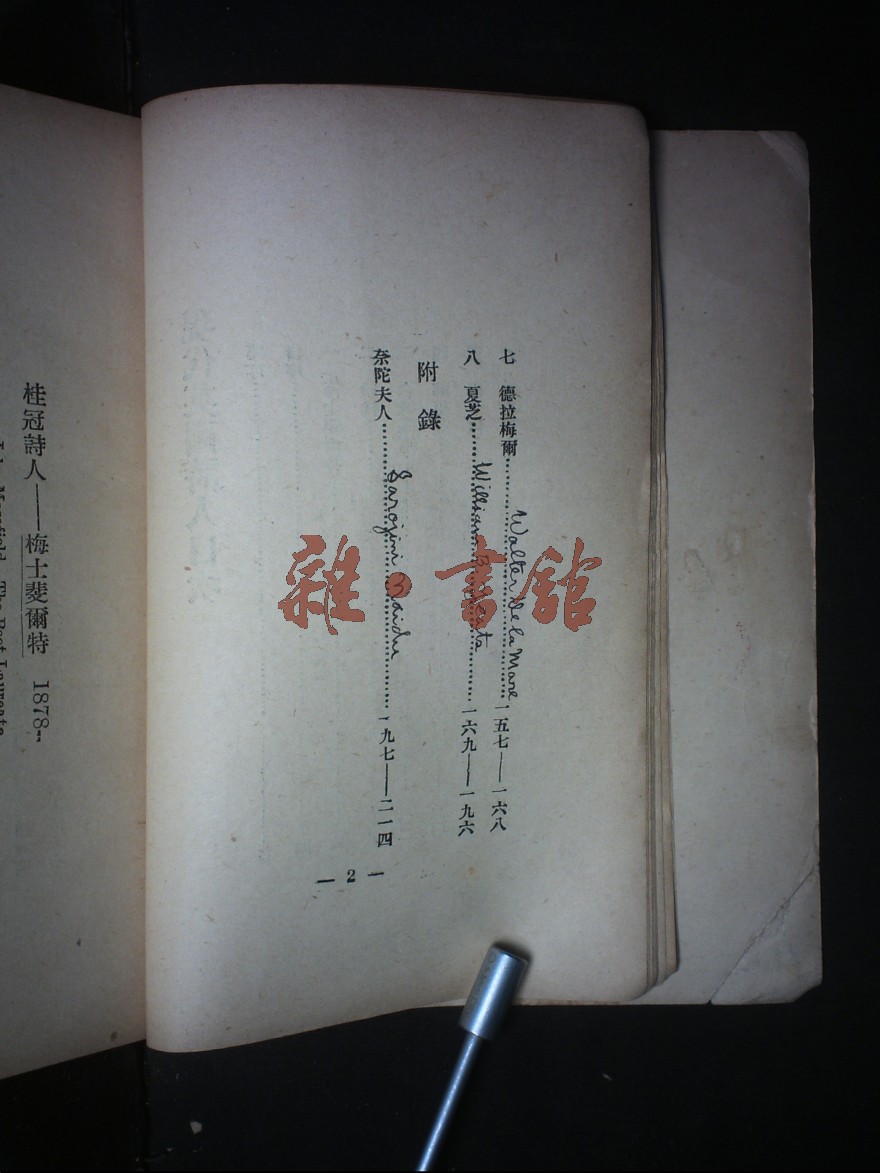 七 德拉梅爾……Walter De la Mare……一五七——一六八
八 夏芝……William B. Yeats……一六九——一九六
附錄
奈陀夫人……Sarojini Naidu……一九七——二一四
— 2 —
桂冠詩人——梅士斐爾特 1878—
雜·書館